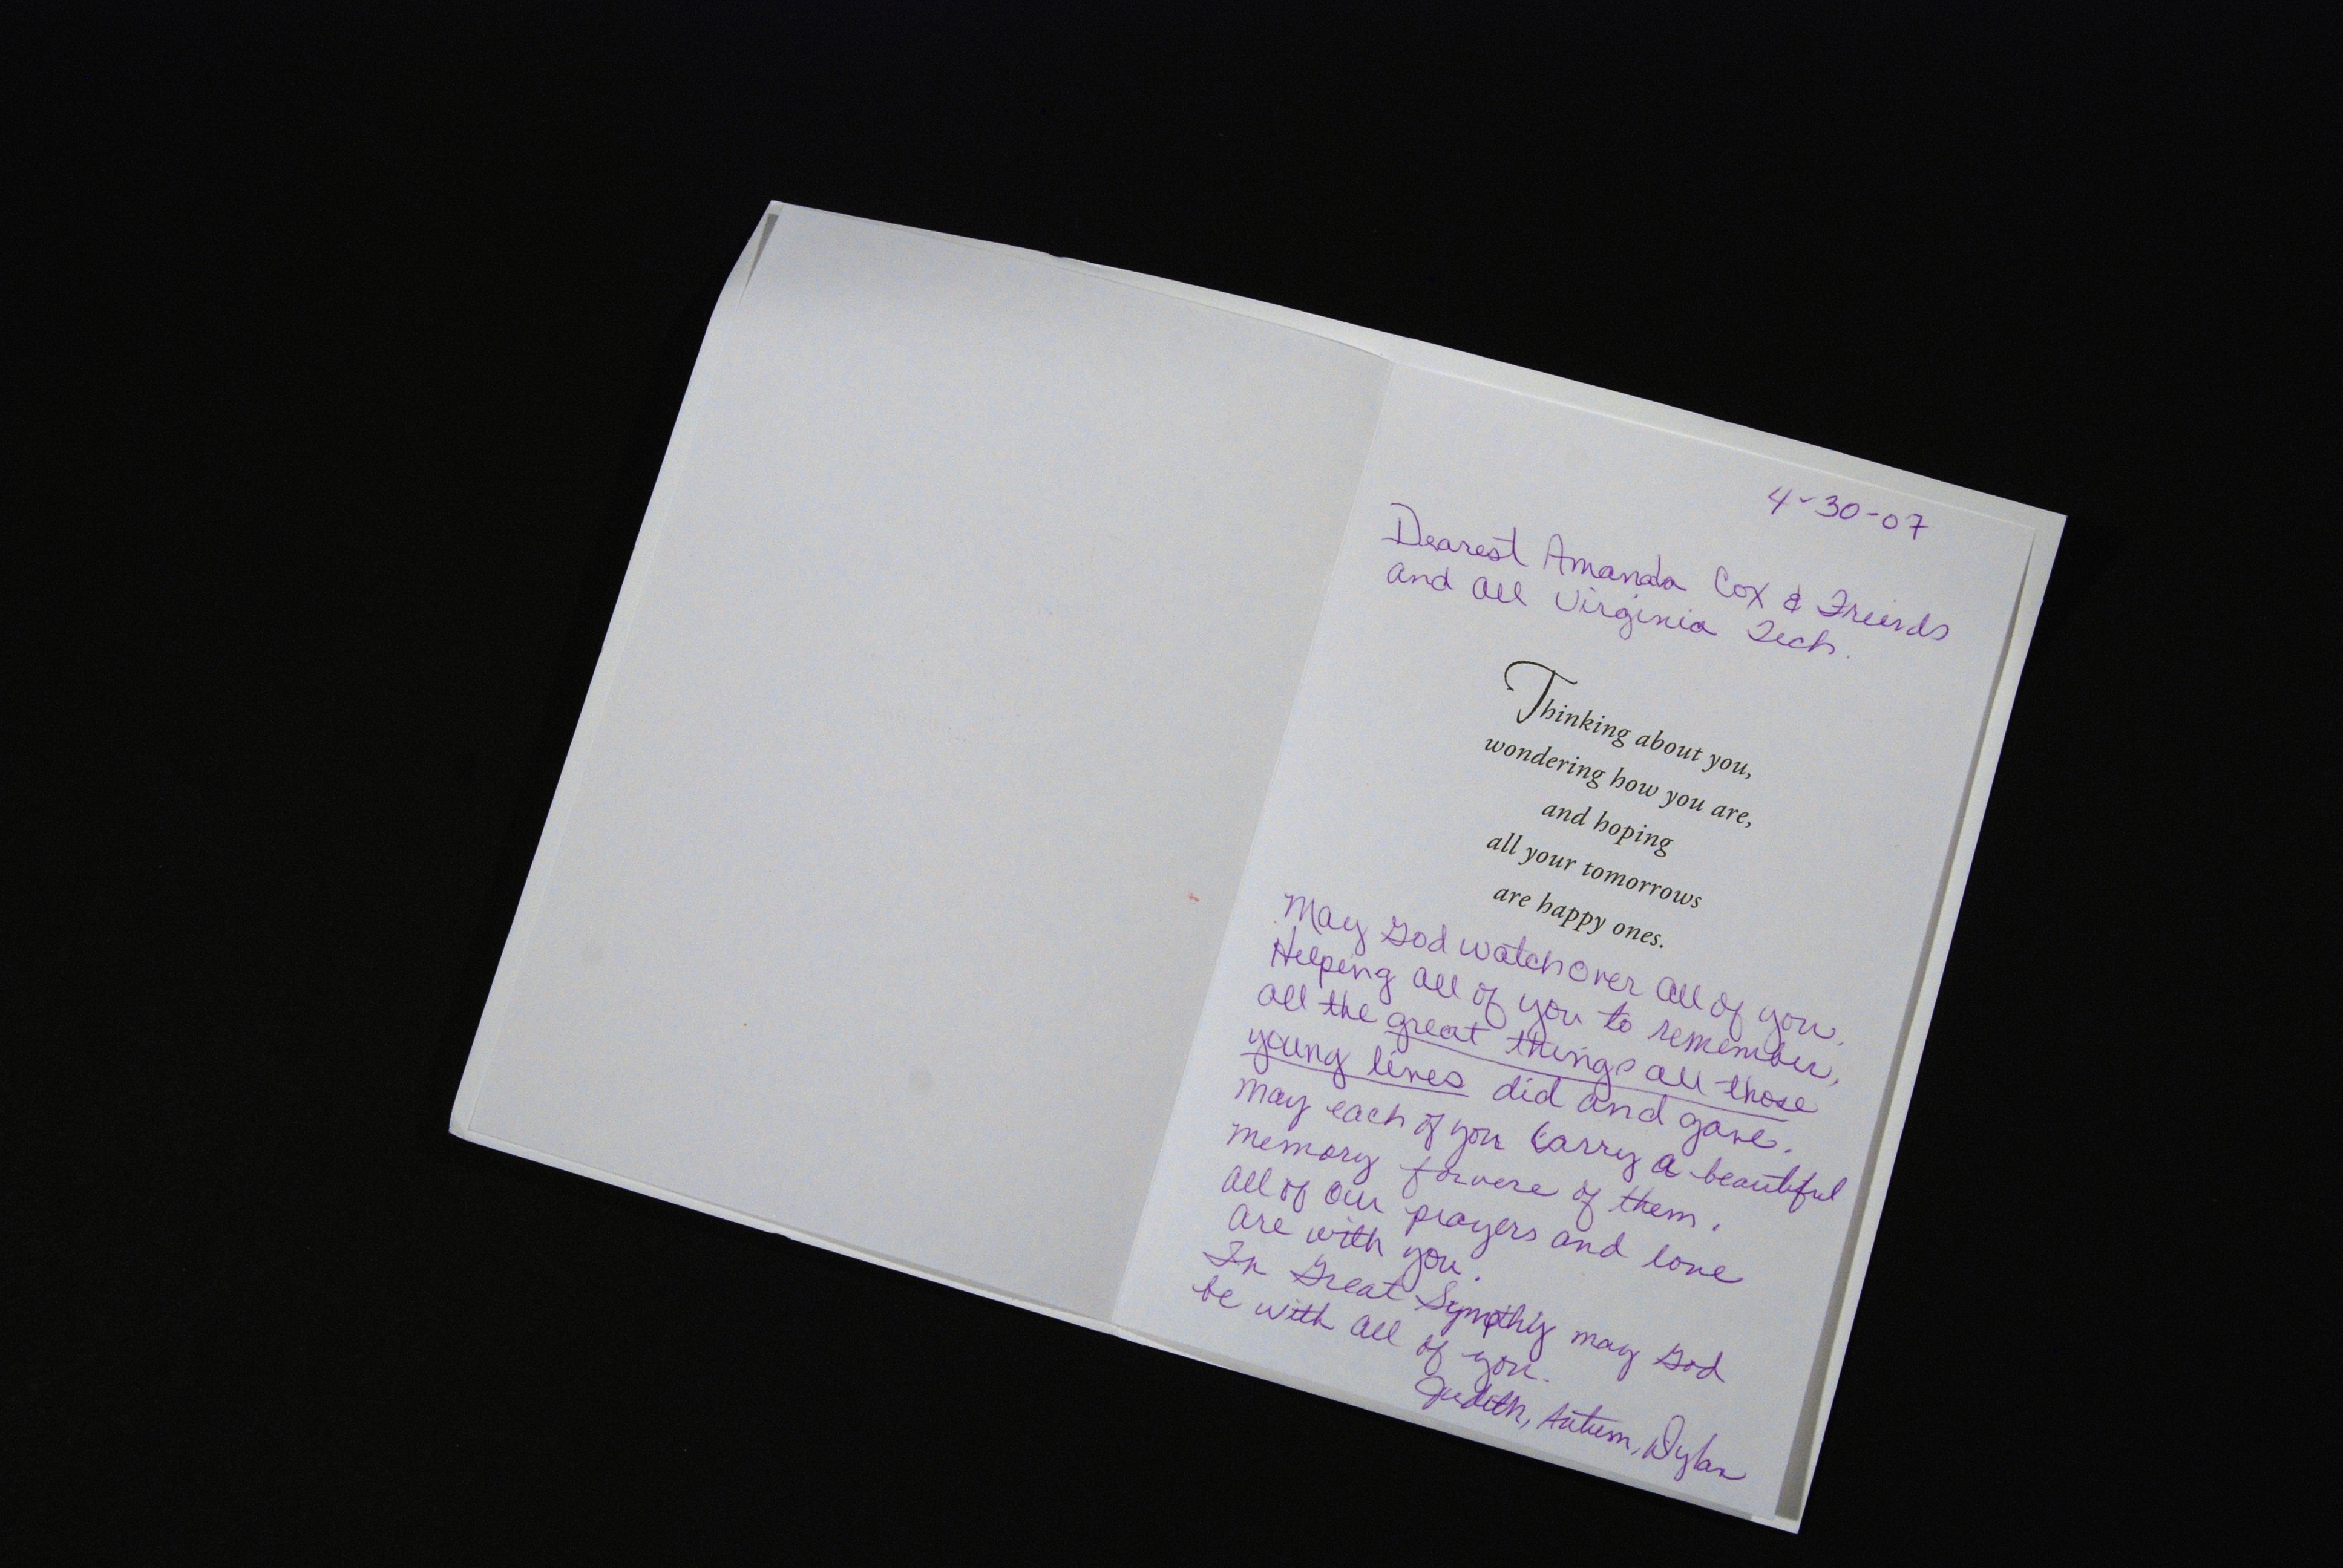 4-30-07
Dearest Amanda Cox & Friends
and all Virginia Tech.
Thinking about you,
wondering how you are,
and hoping
all your tomorrows
are happy ones.
May God watch over all of you.
Helping all of you to remember,
all the great things all those
young lives did and gave.
may each of you carry a beautiful
memory forvere of them.
all of our prayers and love
are with you.
In Great Sympthiy may God
be with all of you.
Judith, Autum, Dylan